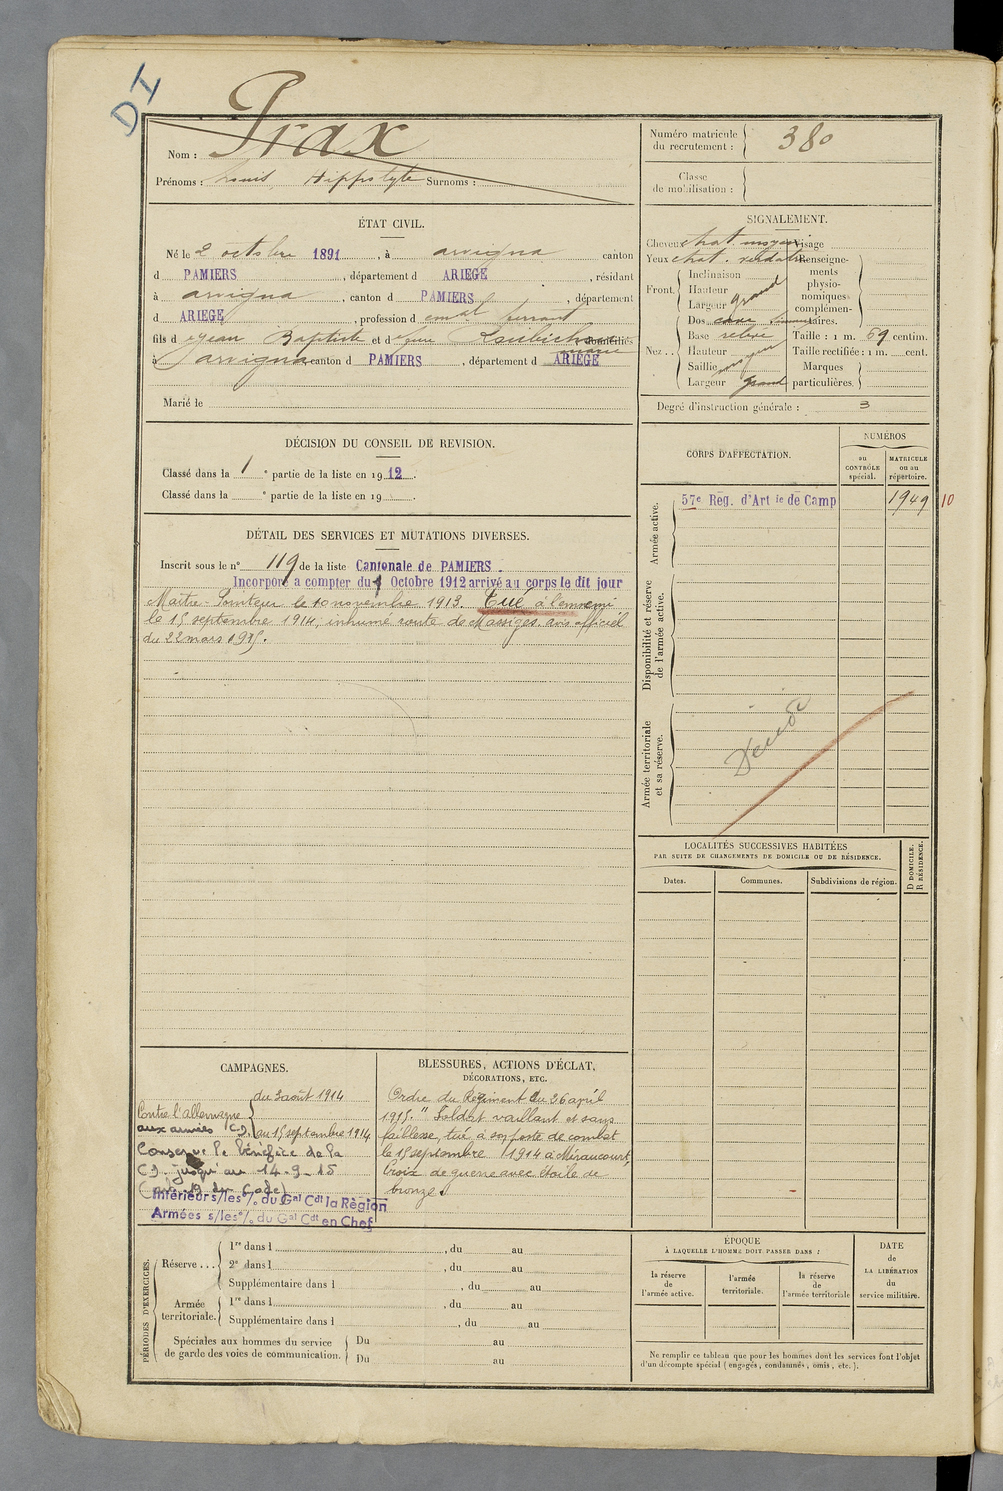 DI
Nom : Prax
Prénoms : Louis Hippolyte Surnoms :
Numéro matricule du recrutement : 380
Classe de mobilisation :
ÉTAT CIVIL.
Né le 2 octobre 1891, à arvigna canton
d PAMIERS, département d ARIEGE, résidant
à arvigna, canton d PAMIERS, département
d ARIEGE, profession d
fils d Jean Baptiste et d domiciliés
à arvigna canton d PAMIERS, département d ARIEGE
Marié le
SIGNALEMENT.
Cheveux chat. moyen Visage
Yeux chat. verdâtre Renseignements physionomiques complémentaires.
Front. Inclinaison
Hauteur
Largeur grand
Nez .. Dos cave
Base relevé
Hauteur
Saillie moyen
Largeur grand
Taille : 1 m. 69 centim.
Taille rectifiée : 1 m. cent.
Marques particulières.
Degré d'instruction générale : 3
DÉCISION DU CONSEIL DE REVISION.
Classé dans la 1e partie de la liste en 1912.
Classé dans la e partie de la liste en 19 .
DÉTAIL DES SERVICES ET MUTATIONS DIVERSES.
Inscrit sous le n° 119 de la liste Cantonale de PAMIERS.
Incorporé a compter du 1 Octobre 1912 arrivé au corps le dit jour
Maître-Pointeur le 10 novembre 1913. Tué à l'ennemi
le 15 septembre 1914, inhumé route de Massiges. avis officiel
du 22 mars 1915.
CORPS D'AFFECTATION.
NUMÉROS
au CONTRÔLE spécial.
MATRICULE ou au répertoire.
Armée active.
57e Reg. d'Art ie de Camp 1949 10
Disponibilité et réserve de l'armée active.
Armée territoriale et sa réserve.
Décédé
LOCALITÉS SUCCESSIVES HABITÉES
PAR SUITE DE CHANGEMENTS DE DOMICILE OU DE RÉSIDENCE.
Dates.
Communes.
Subdivisions de région.
D DOMICILE.
R RÉSIDENCE.
CAMPAGNES.
du 3 août 1914
Contre l'allemagne
aux armées (CD.) au 15 septembre 1914
Conserve le bénéfice de la
CD. jusqu'au 14-9-15
Intérieur s/les o/ du Gal Cdt la Règion
Armées s/les o/ du Gal Cdt en Chef
BLESSURES, ACTIONS D'ÉCLAT,
DÉCORATIONS, ETC.
Ordre du Régiment du 26 avril
1915. "Soldat vaillant et sans
faiblesse, tué à son poste de combat
le 15 septembre 1914 à Minaucourt,
Croix de guerre avec étoile de
bronze.
PÉRIODES D'EXERCICES.
Réserve ...
1re dans l , du au
2e dans l , du au
Supplémentaire dans l , du au
Armée territoriale.
1re dans l , du au
Supplémentaire dans l , du au
Spéciales aux hommes du service
de garde des voies de communication.
Du au
Du au
ÉPOQUE
À LAQUELLE L'HOMME DOIT PASSER DANS :
la réserve de l'armée active.
l'armée territoriale.
la réserve de l'armée territoriale
DATE de LA LIBÉRATION du service militaire.
Ne remplir ce tableau que pour les hommes dont les services font l'objet
d'un décompte spécial (engagés, condamnés, omis, etc.).